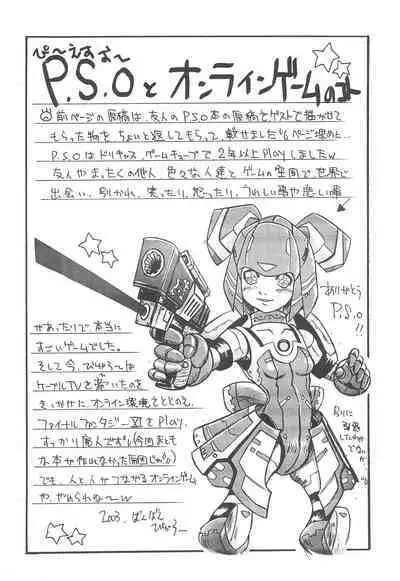 ぴ〜えすお〜
P.S.Oとオンラインゲームのコト
前ページの原稿は、友人のPSO本の原稿をゲストで描かせて
もらった物を、ちょいと返してもらって、載せましたページ埋めに…
P.S.Oはドリキャス、ゲームキューブで2年以上Playしましたw
友人やまったくの他人、色々な人達とゲームの空間で、世界で
出会い、別れ、笑ったり、怒ったり、うれしい事や悲しい事
があったりで、本当に
すごいゲームでした。
そして今、びゅう〜は
ケーブルTVを
きっかけに、オンライン環境をととのえ、
ファイナルファンタジーXIをPlay.
すっかり廃人です
な本が作れなかった原因じゃ
でも、人と人がつながるオンラインゲーム
や、やめられな〜いw
2003.
ありがとう
P.S.O
!!